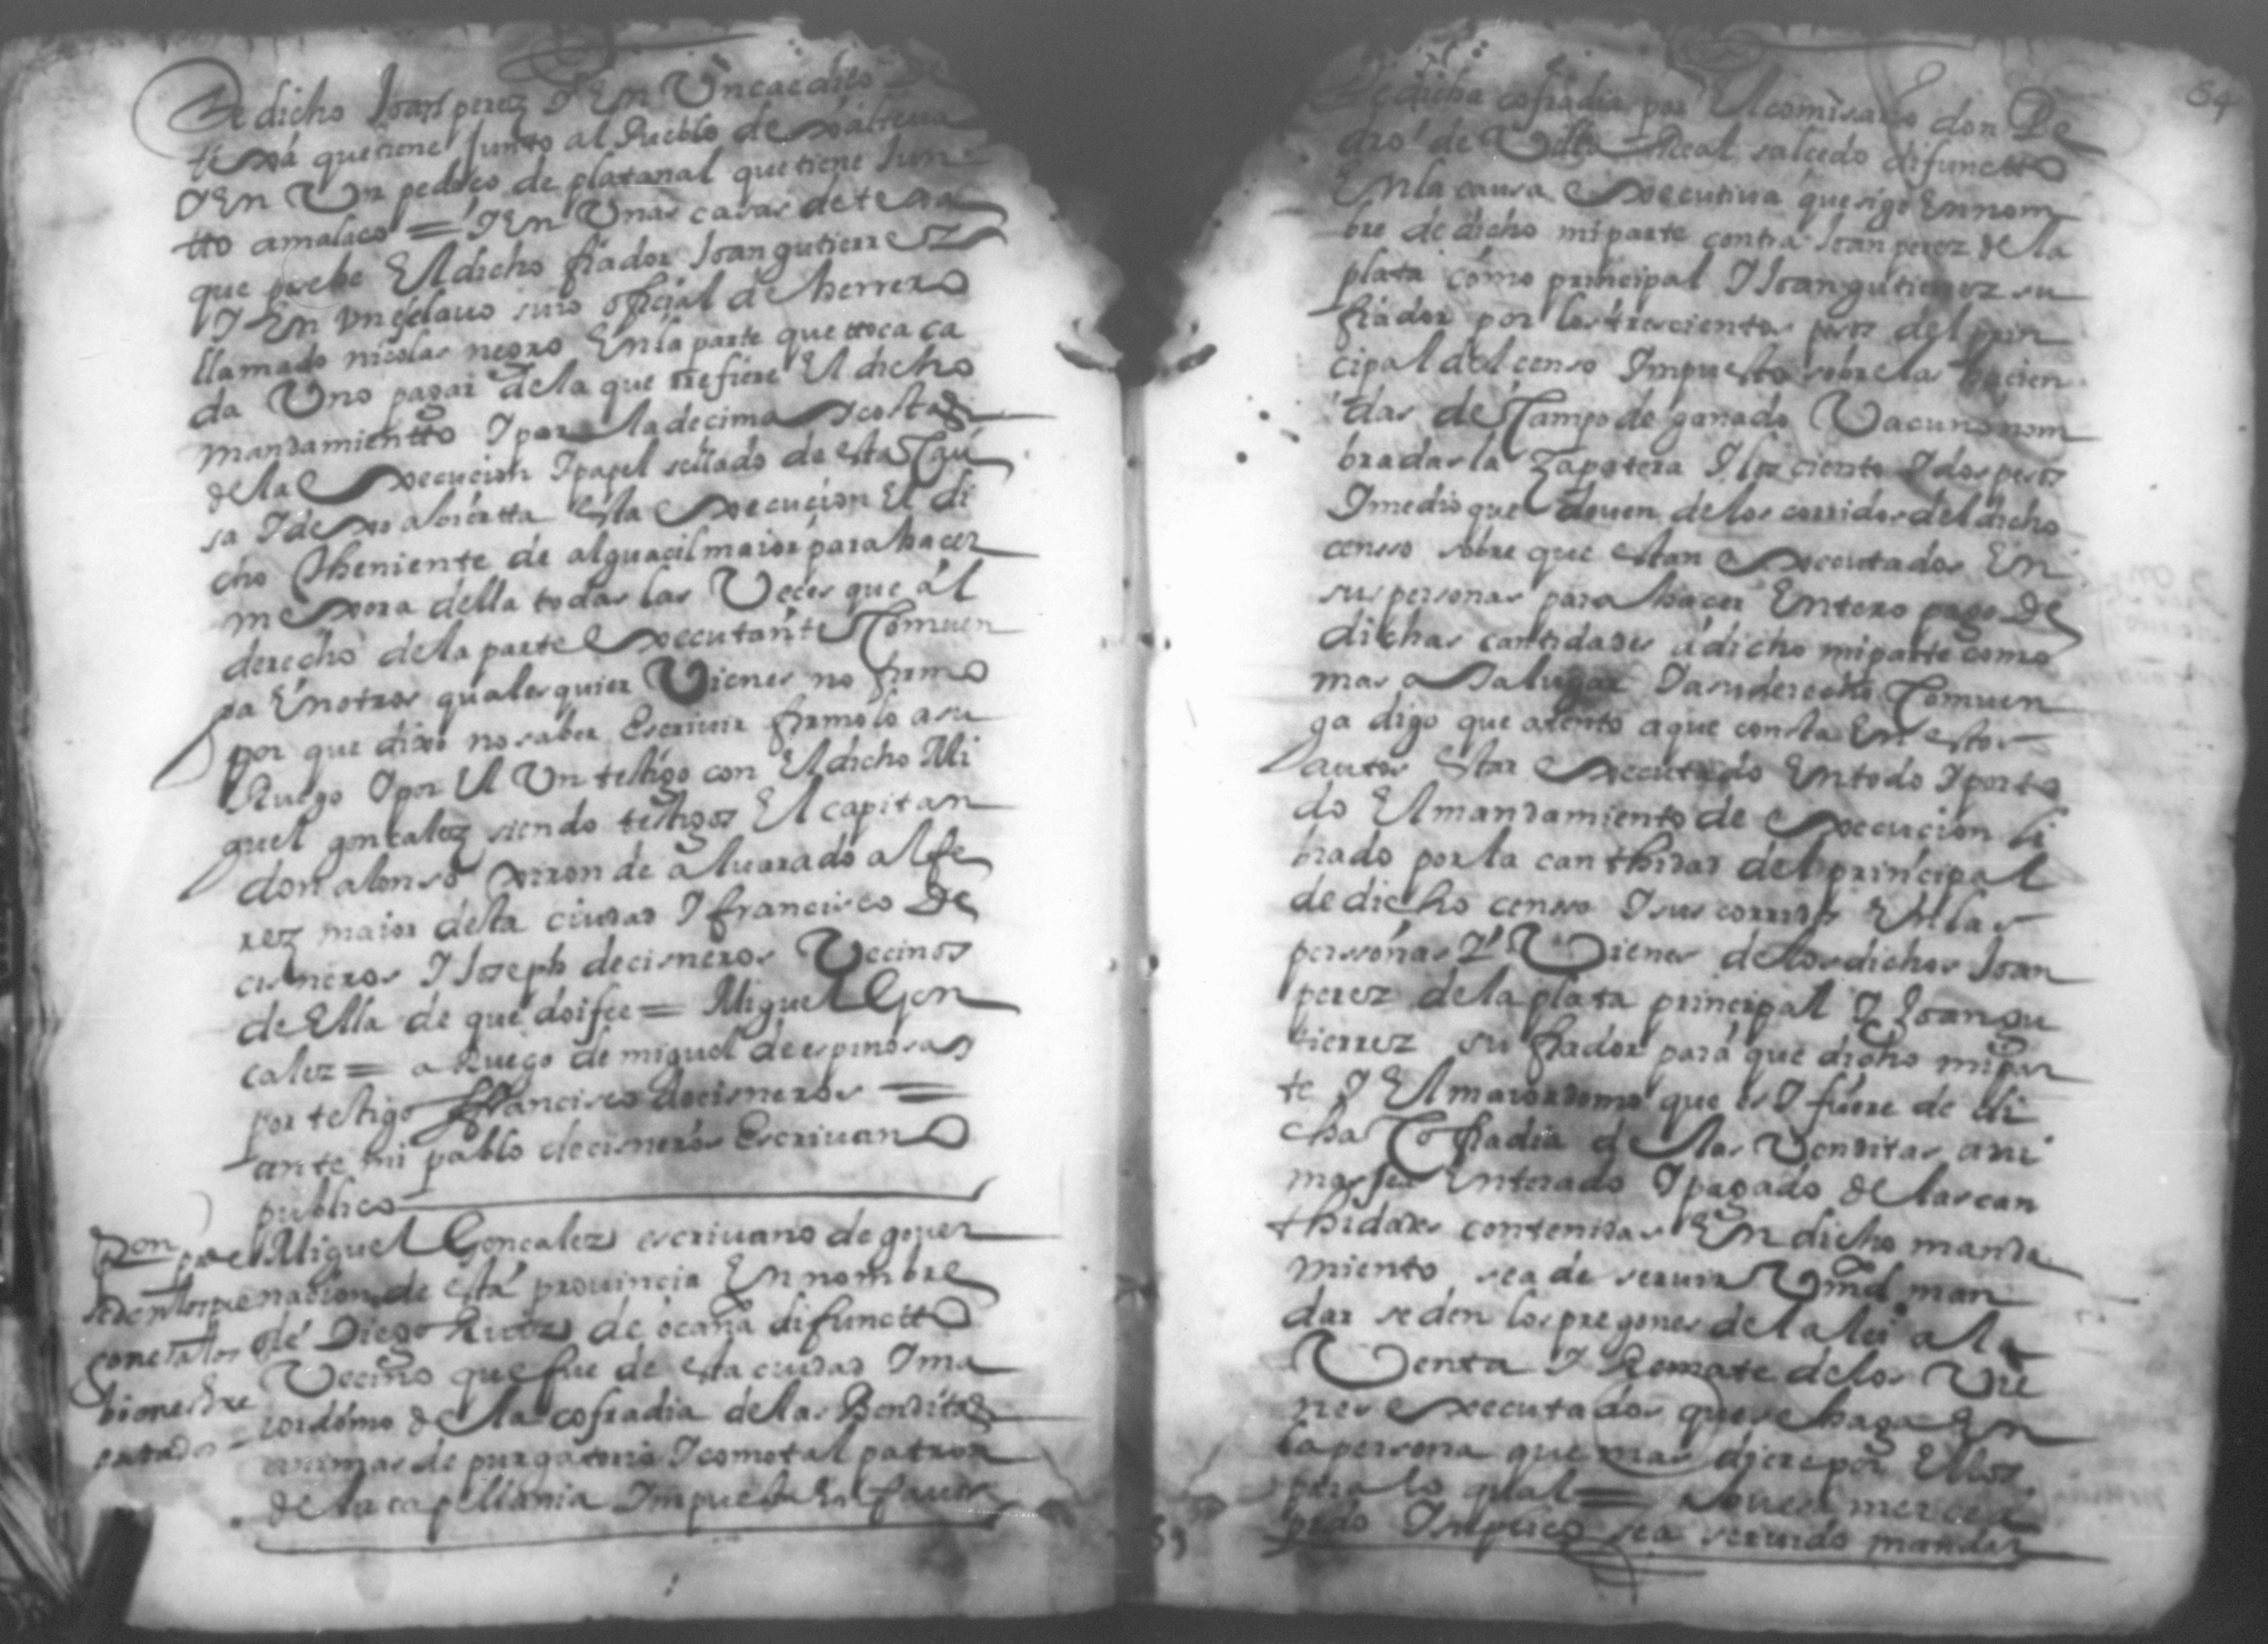 de dicho Joan perez I En Un cacaboto de
te que tiene Junto al Pueblo de xalteua
I En Un pedaço de platanal que tiene Jun
tto amalaco = I En Unas casas de texa
que posehe El dicho fiador Joan gutierrez
I En Un esclauo suio oficial de herrero
llamado nicolas negro En la parte que ttoca ca
da Uno pagar de la que rrefiere El dicho
mandamientto I por la decima I costas
de la Execucion I papel sellado de esta cau
sa I dexo abierta esta Execucion El di
cho theniente de alguacil maior para hacer
mexora della todas las Veces que al
derecho de la parte Executante Comuen
ga En otros qualesquier Vienes no firmo
por que dixo no saber Escriuir firmolo a su
Ruego I por El Un testigo con El dicho Mi
guel gonçalez siendo testigos El capitan
don alonso xiron de aluarado alfe
rez maior desta ciudad I francisco de
cisneros I Joseph de cisneros Vecinos
de Ella de que doi fee = Miguel Gon
calez = a Ruego de miguel de espinosa y
por testigo francisco de cisneros =
ante mi pablo de cisneros Escriuano
publico
Miguel Goncalez escriuano de gouer
nacion de esta prouincia En nombre
de Diego Ruiz de ocaña difunctto
Vecino que fue de esta ciudad I ma
iordomo de la cofradia de las Benditas
animas de purgatorio I como tal patron
de la capellania Impuesta En fauor
se den los pre
bienes exe
cutados =
54
de dicha cofradia por El comisario don Pe
dro de Villa Real salcedo difunctto
En la causa Executiua que sigo En nom
bre de dicho mi parte contra Joan perez de la
plata como principal I Joan gutierrez su
fiador por los trescientos pesos del prin
cipal del censo Impuesto sobre las hacien
das de Campo de ganado Vacuno nom
bradas la Zapotera I los ciento I dos pesos
I medio que deuen de los corridos del dicho
censso sobre que estan Executados En
sus personas para hacer Entero pago de
dichas cantidades a dicho mi parte como
mas a Ia lugar I a su derecho Comuen
ga digo que atento a que consta En estos
autos Estar Executado En todo I por to
do El mandamiento de Execucion li
brado por la canthidad del principal
de dicho censso I sus corridos En las
perssonas I Vienes de los dichos Joan
perez de la plata principal I Joan gu
tierrez su fiador para que dicho mi par
te I El maiordomo que es I fuere de di
cha Cofradia de las Venditas ani
mas sea Enterado I pagado de las can
thidades contenidas En dicho manda
miento sea de seruir Vmd man
dar se den los pregones de la lei a la
Venta I Remate de los Vie
nes Executados que se haga En
la persona que mas diere por Ellos
para lo qual =
pido I suplico sea seruido mandar